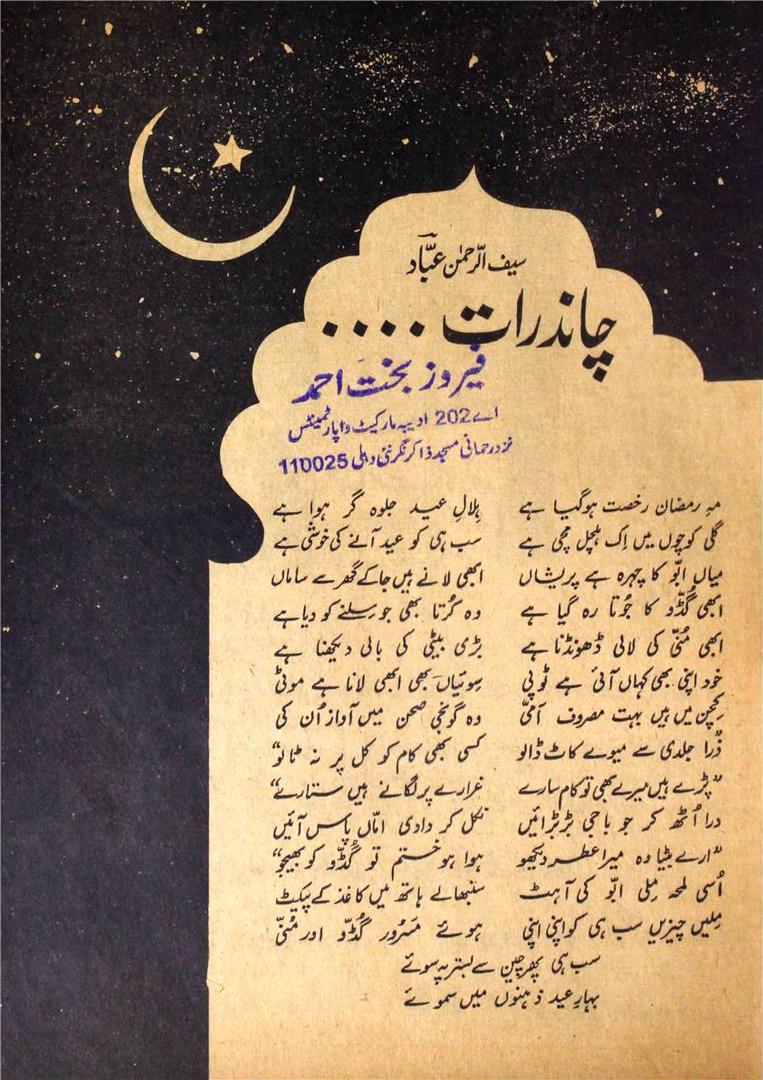 سیف الرّحمٰن عبّاد
چاند رات ....
فیروز بخت احمد
اے 202 ادیبہ مارکیٹ و اپارٹمینٹس
نزد رحمانی مسجد ذاکر نگر نئی دہلی 110025
مہِ رمضان رخصت ہوگیا ہے ہلالِ عید جلوہ گر ہوا ہے
گلی کوچوں میں اِک ہلچل مچی ہے سب ہی کو عید آنے کی خوشی ہے
میاں ابّو کا چہرہ ہے پریشاں ابھی لانے ہیں جا کے گھر سے ساماں
ابھی گُڈّو کا جُوتا رہ گیا ہے وہ کُرتا بھی جو سِلنے کو دیا ہے
ابھی مُنّی کی لالی ڈھونڈنا ہے بڑی بیٹی کی بالی دیکھنا ہے
خود اپنی بھی کہاں آئی ہے ٹوپی سوئیاں بھی ابھی لانا ہے موٹی
کچن میں ہیں بہت مصروف امّی وہ گونجی صحن میں آواز اُن کی
”ذرا جلدی سے میوے کاٹ ڈالو کسی بھی کام کو کل پر نہ ٹالو“
”پڑے ہیں میرے بھی تو کام سارے غرارے پر لگانے ہیں ستارے“
ذرا اُٹھ کر جو باجی بڑبڑائیں نکل کر دادی امّاں پاس آئیں
”ارے بیٹا وہ میرا عطر دیکھو ہوا ہو ختم تو گُڈّو کو بھیجو“
اُسی لمحہ مِلی ابّو کی آہٹ سنبھالے ہاتھ میں کاغذ کے پیکٹ
مِلیں چیزیں سب ہی کو اپنی اپنی ہوئے مسَرُور گُڈّو اور مُنّی
سب ہی پھر چین سے بستر پہ سوئے
بہارِ عید ذہنوں میں سموئے